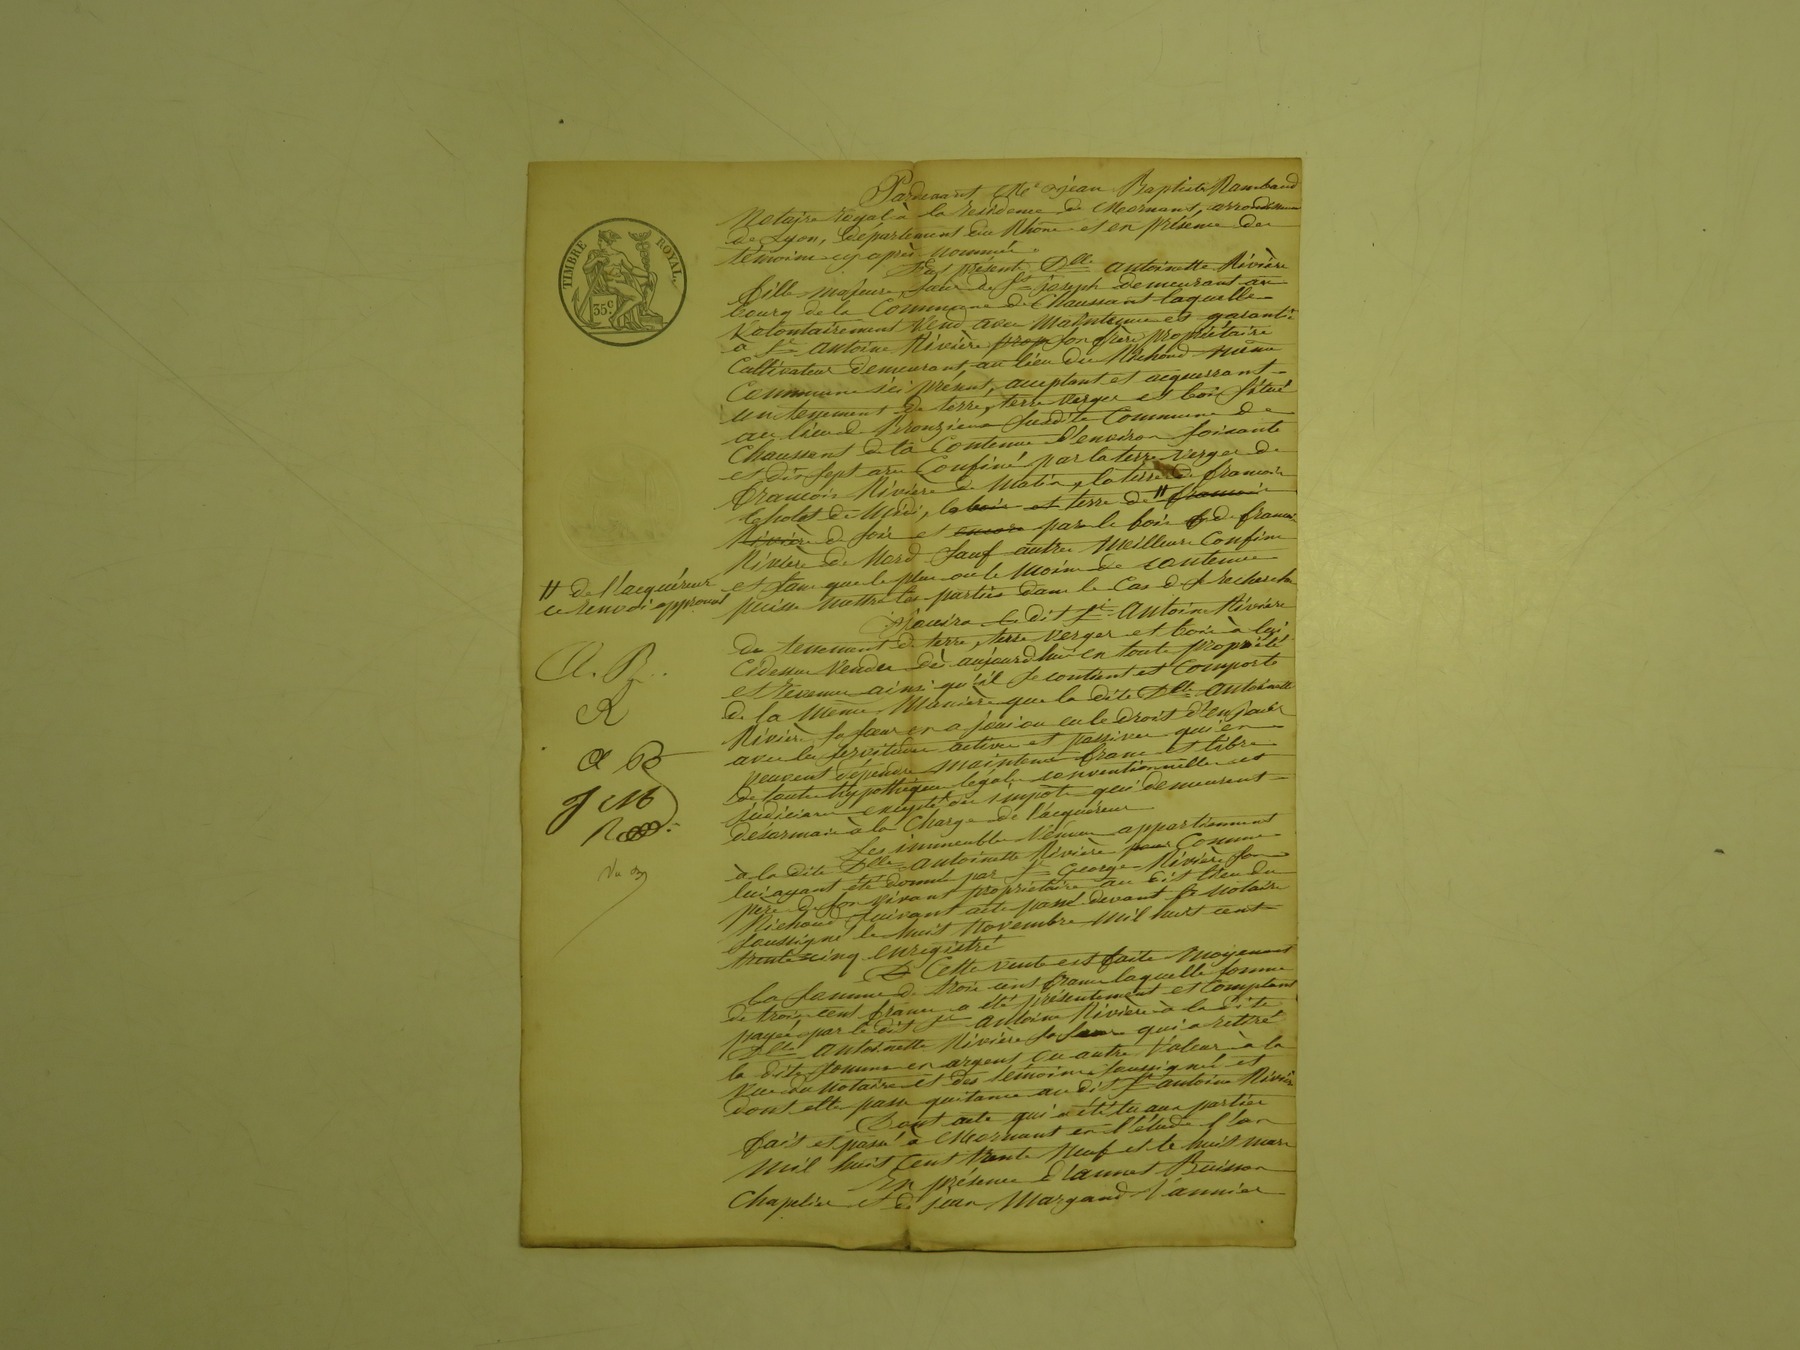 Pardevant Me Jean Baptiste Rambaud
Notaire royal à la résidence de Mornant, arrondissement
de Lyon, département du Rhône et en présence des
témoins cy après nommés.
TIMBRE ROYAL.
35 c.
Est présente Dlle Antoinette Rivière
fille majeure, sœur de St joseph demeurant au
bourg de la Commune de Chaussant laquelle
Volontairement Vend avec Maintenue et garantie
à Sr Antoine Rivière prop son frère propriétaire
Cultivateur demeurant au lieu du Richoud même
Commune ici présent, acceptant et acquerrant
un tenement de terre, terre verger et bois situé
au lieu de Bronzieux susdite Commune de
Chaussant de la Contenue d'environ soixante
et dix sept ares Confiné par la terre verger de
François Rivière de Matin, la terre de françois
de Midi, le bois et terre de # françois
Rivière de soir et encore par le bois de françois
Rivière de Nord sauf autres Meilleurs Confins
# de l'acquéreur
ce renvoi approuvé
et sans que le plus ou le Moins de contenue
puisse mettre les parties dans le Cas de recherche
Jouira le dit Sr Antoine Rivière
du tenement de terre, terre verger et bois à lui
Cidessus Vendu dès aujourdhui en toute propriété
et revenus ainsi qu'il se contient et Comporte
de la Même Manière que la dite Dlle Antoinette
Rivière sa sœur en a joui ou eu le droit d'en jouir
avec les servitudes actives et passives qui en
peuvent dépendre maintenu franc et libre
de toutes hypothèques légales conventionnelles et
judiciaires excepté des impôts qui demeurent
désormais à la Charge de l'acquéreur
A. R.
R
a B
J M
R
Les immeubles Vendus appartiennent
à la dite Dlle Antoinette Rivière pour Comme
lui ayant été donné par Sr George Rivière son
père de son vivant propriétaire au dit lieu du
Richoud suivant acte passé devant le Notaire
soussigné le huit Novembre Mil huit cent
trente cinq enregistré
Cette vente est faite Moyennant
la somme de trois cent francs laquelle somme
de trois cent francs a été présentement et Comptant
payée par le dit Sr Antoine Rivière à la dite
Dlle Antoinette Rivière sa sœur qui a retiré
la dite somme en argent ou autre Valeur à la
Vue du Notaire et des témoins soussignés et
dont elle passe quitance au dit Sr antoine Rivière
Dont acte qui a été lu aux parties
fait et passé à Mornant en l'étude l'an
Mil huit Cent trente Neuf et le huit mars
En présence d'annet Buisson
Chapelier et de jean Margand Vannier